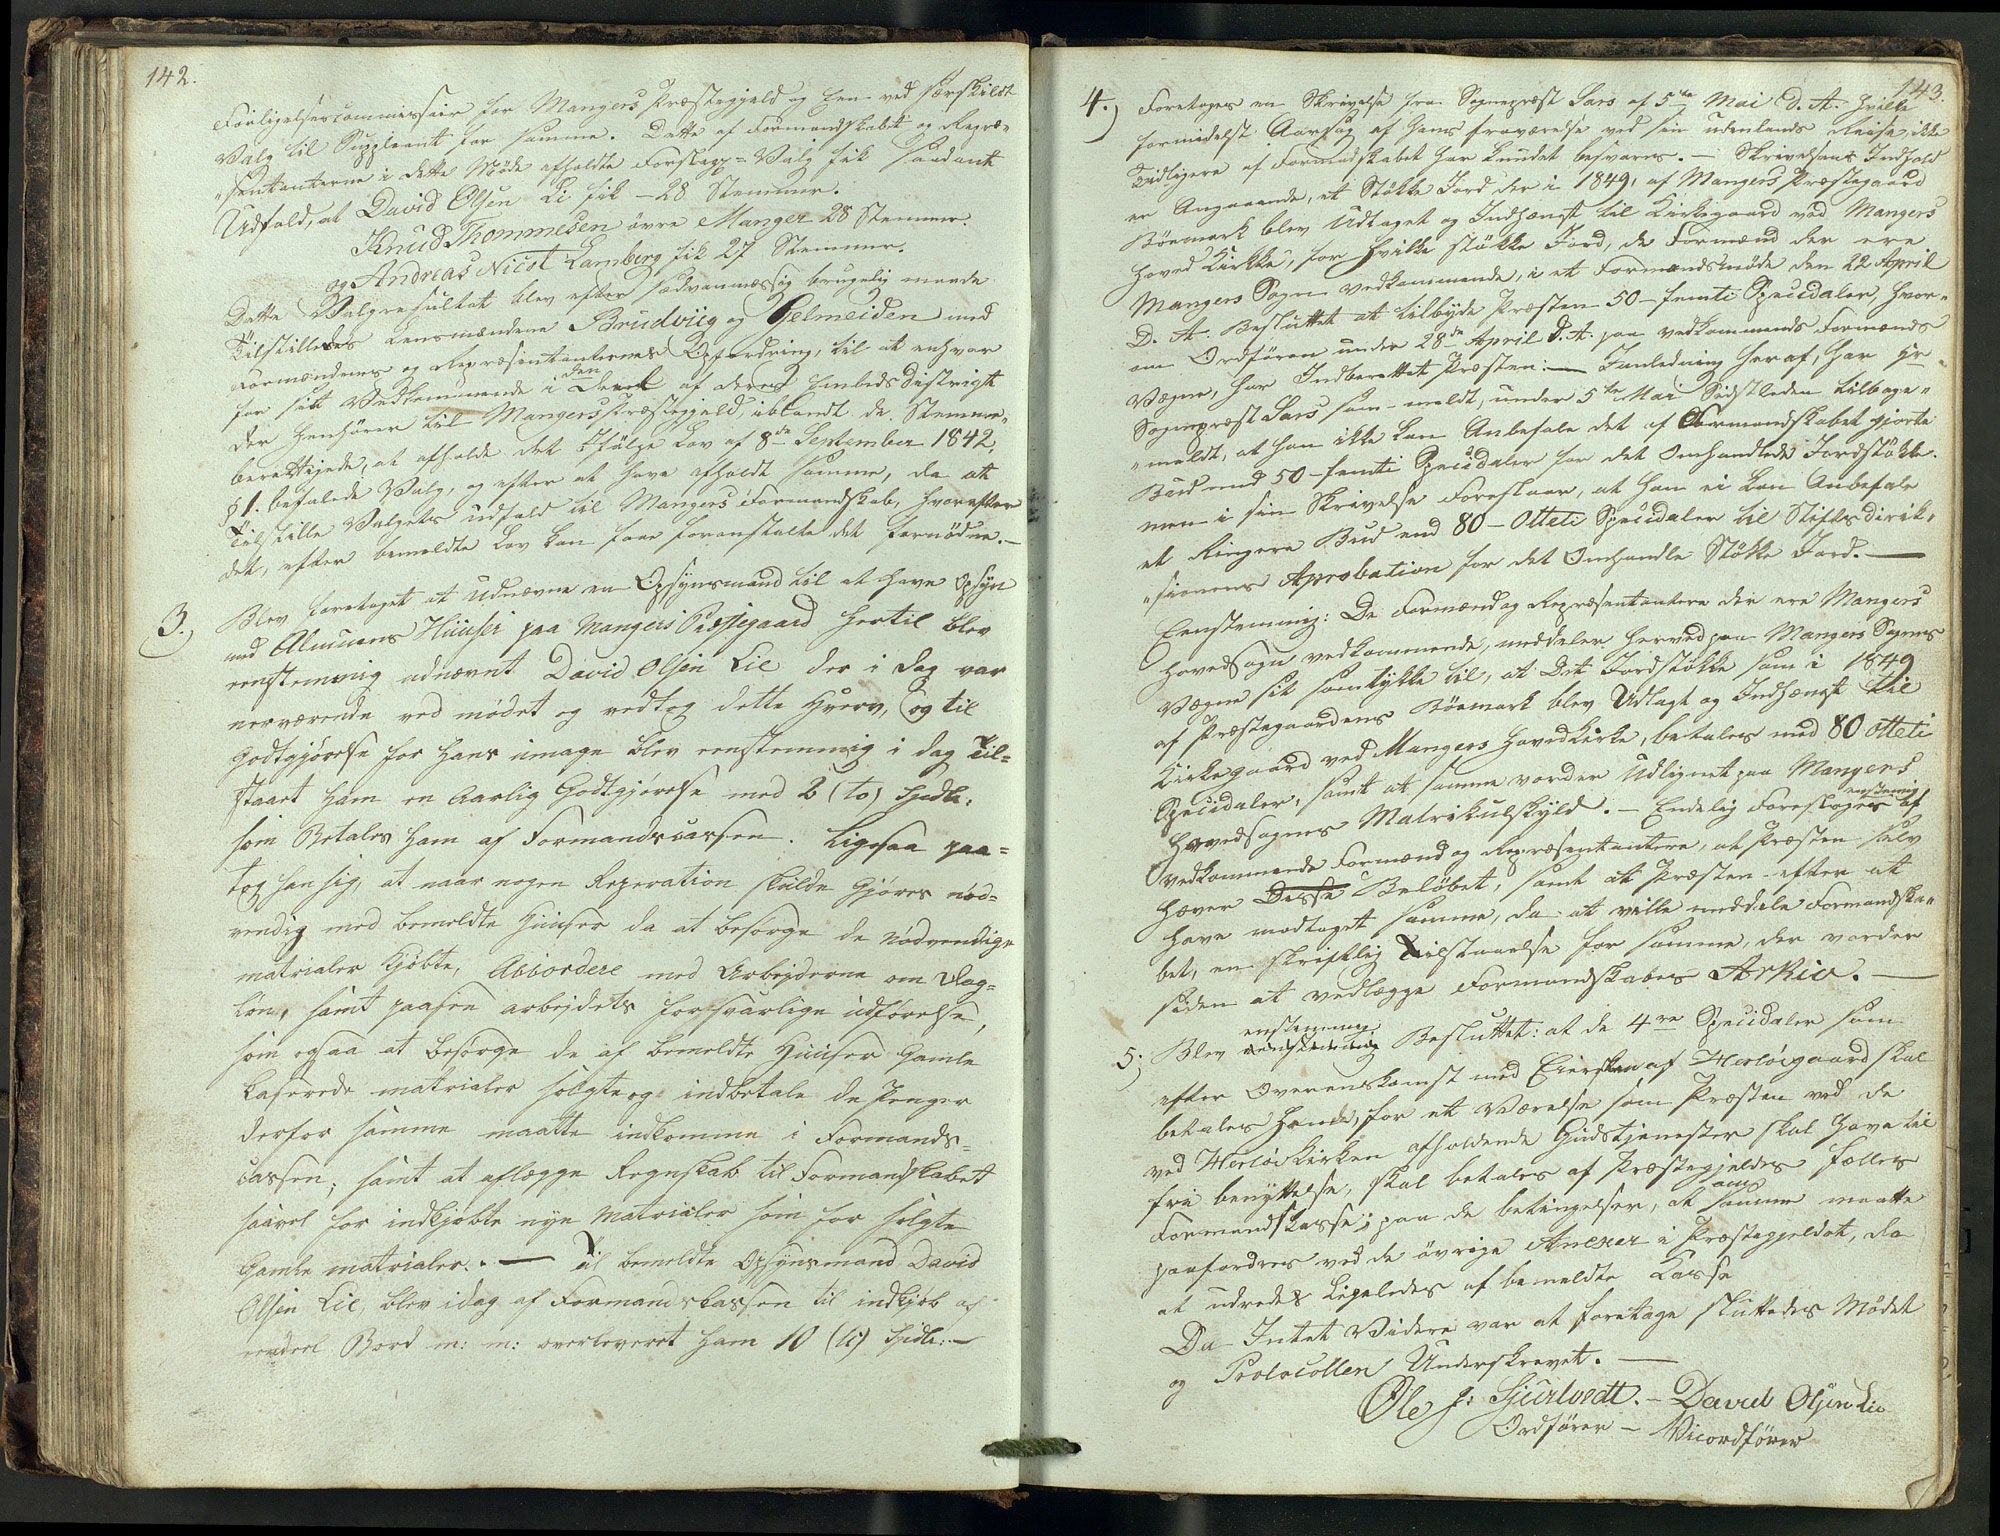 142.
Forligelsescommissair for Mangers Præstegjeld og een ved særskilt
Valg til Suppleant for samme. Dette af Formandskabet og Repræ-
sentanterne i dette Møde afholdte Forslags-Valg fik saadant
Udfald, at David Olsen Li fik - 28 Stemmer.
Knud Thommesen övre Manger 28 Stemmer.
og Andreas Nicol Lamberg fik 27 Stemmer.
Dette Valgresultat blev efter sædvanmæssig brugelig maade
Tilstilledes Lensmændene Brudviig og Helmeiden med
Formændenes og Repræsentanternes Opfordring, til at enhver
for sit Vedkommende i den Deel af deres Embeds distrigt
der henhører til Mangers Præstegjeld, iblandt de Stemme-
berettigede, at afholde det Ifølge Lov af 8de September 1842,
§ 1. befalede Valg, og efter at have afholdt samme, da at
Tilstille Valgets udfald til Mangers Formandskab, hvorefter
det, efter bemeldte Lov kan faae foranstaltet det fornødne. —
3.) Blev foretaget at udnævne en Opsynsmand til at have opsyn
med Almuens Huuser paa Mangers Præstegaard hertil blev
eenstemmig udnævnt David Olsen Lie der i dag var
nerværende ved mødet og vedtog dette Hverv, og til
Godtgjørelse for hans umage blev eenstemmig i dag til-
staaet ham en Aarlig Godtgjørelse med 2 (to) Spdlr.
som Betales ham af Formandscassen. Ligesaa paa-
tog han sig, at naar nogen Reperation skulde Gjøres nød-
vendig med bemeldte Huuser da at besørge de Nødvendige
matrialer kjøbte, Accordere med Arbejderne om Dag-
løn, samt paasee arbejdets forsvarlige udførelse,
som ogsaa at besørge de af bemeldte Huuser Gamle
kaserede matrialer solgte og indbetale de Penger
derfor samme maatte indkomme i Formands-
cassen; samt at aflægge Regnskab til Formandskabet
saavel for indkjøbte nye Matrialer som for solgte
Gamle matrialer. — Til bemeldte Opsynsmand David
Olsen Lie, blev idag af Formandskassen til indkjøb af
endeel Bord m: m: overleveret ham 10 (ti) Spdlr. —
143.
4.) Foretoges en Skrivelse fra Sognepræst Sars af 5te Mai d. A. hvilke
formedelst Aarsag af hans fraværelse ved sin udenlands Reise, ikke
Tidligere af Formadskabet har kundet besvares. — Skrivelsens Indhold
er Angaaende, et Støkke Jord der i 1849, af Mangers Præstegaard
Bömark blev Udtaget og Indhægnet til Kirkegaard ved Mangers
Hoved Kirkke, for hvilke støkke Jord, de Formænd der ere
Mangers Sogn vedkommende, i et Formandsmøde den 22 April
D. A. Besluttet at tilbyde Præsten 50 - femti Speciedaler, hvor-
om Ordføren under 28de April d. A. paa vedkommende Formænds
Vegne, har Indberettet Præsten. — I anledning heraf, har Hr
Sognepræst Sars som - meldt, under 5te Mai Sidstleden tilbage-
meldt, at han ikke kan Anbefale det af Formandskabet gjorte
Bud med 50 - femti Speciedaler for det Omhandlede Jordstøkke.
men i sin Skrivelse Foreslaar, at han ei kan Anbefale
et Ringere Bud end 80 - Otteti Speciedaler til Stiftsdirek-
sionens Aprobation for det Omhandle Støkke Jord. —
Eenstemmig: De Formænd og Repræsentantere der ere Mangers
Hovedsogn vedkommende, meddeler herved paa Mangers Sogns
Vegne sit samtykke til, at det Jordstøkke som i 1849
af Præstegaardens Bömark blev Udlagt og Indhægnet til
Kirkegaard ved Mangers Hovedkirke, betales med 80 otteti
Speciedaler, samt at samme vorder Udlignet paa Mangers
Hovedsogns Matrikulskyld. — Endelig Foresloges enstemig af
vedkommende Formænd og Repræsentantere, at Præsten selv
hæver Desse Beløbet, samt at Præsten efter at
have modtaget samme, da at ville meddele Formandska-
bet, en skriftlig Tilstaaelse for samme, der vorder
siden at vedlægge Formandskabes Arkiv. —
5; Blev enstemmig Besluttet: at de 4re Speciedaler som
efter Overenskomst med Eiersken af Herløegaard skal
betales hende, for et Værelse som Præsten ved de
ved Herløekirken afholdende Gudstjenester skal have til
fri benyttelse, skal betales af Præstegjeldes fælles
Formandskasse; paa de betingelser, at samme om maatte
paafordres ved de øvrige Anexer i Præstegjeldet, da
at udredes Ligeledes af bemeldte Kasse
Da Intet Videre var at foretage sluttedes Mødet
og Protocollen Underskrevet. —
Ole J: Sjurtvedt. — David Olsen Lie
Ordfører — Viceordfører